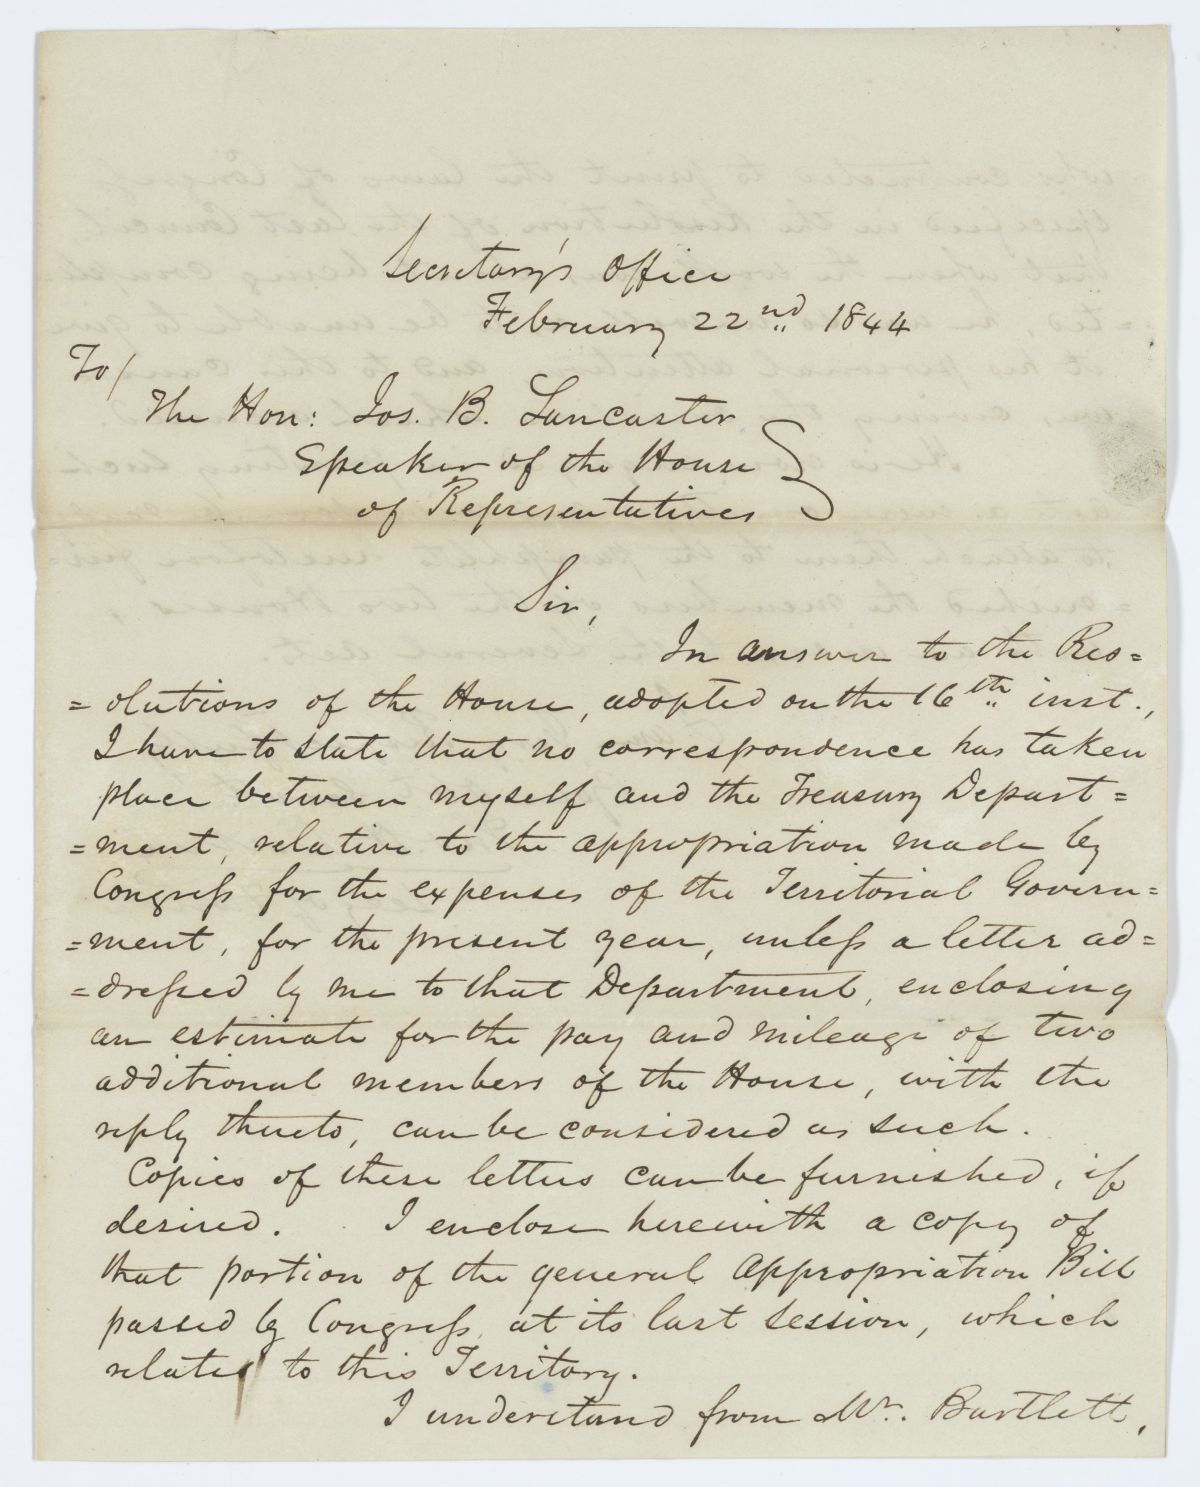 Secretary's Office
February 22nd 1844
To/
The Hon: Jos. B. Lancaster
Speaker of the House
of Representatives
Sir,
In answer to the Res=
=olutions of the House, adopted on the 16th inst.,
I have to state that no correspondence has taken
place between myself and the Treasury Depart=
=ment, relative to the appropriation made by
Congress for the expenses of the Territorial Govern=
=ment, for the present year, unless a letter ad=
=dressed by me to that Department, enclosing
an estimate for the pay and mileage of two
additional members of the House, with the
reply thereto, can be considered as such.
Copies of these letters can be furnished, if
desired. I enclose herewith a copy of
that portion of the general Appropriation Bill
passed by Congress, at its last session, which
relates to this Territory.
I understand from Mr. Bartlett,